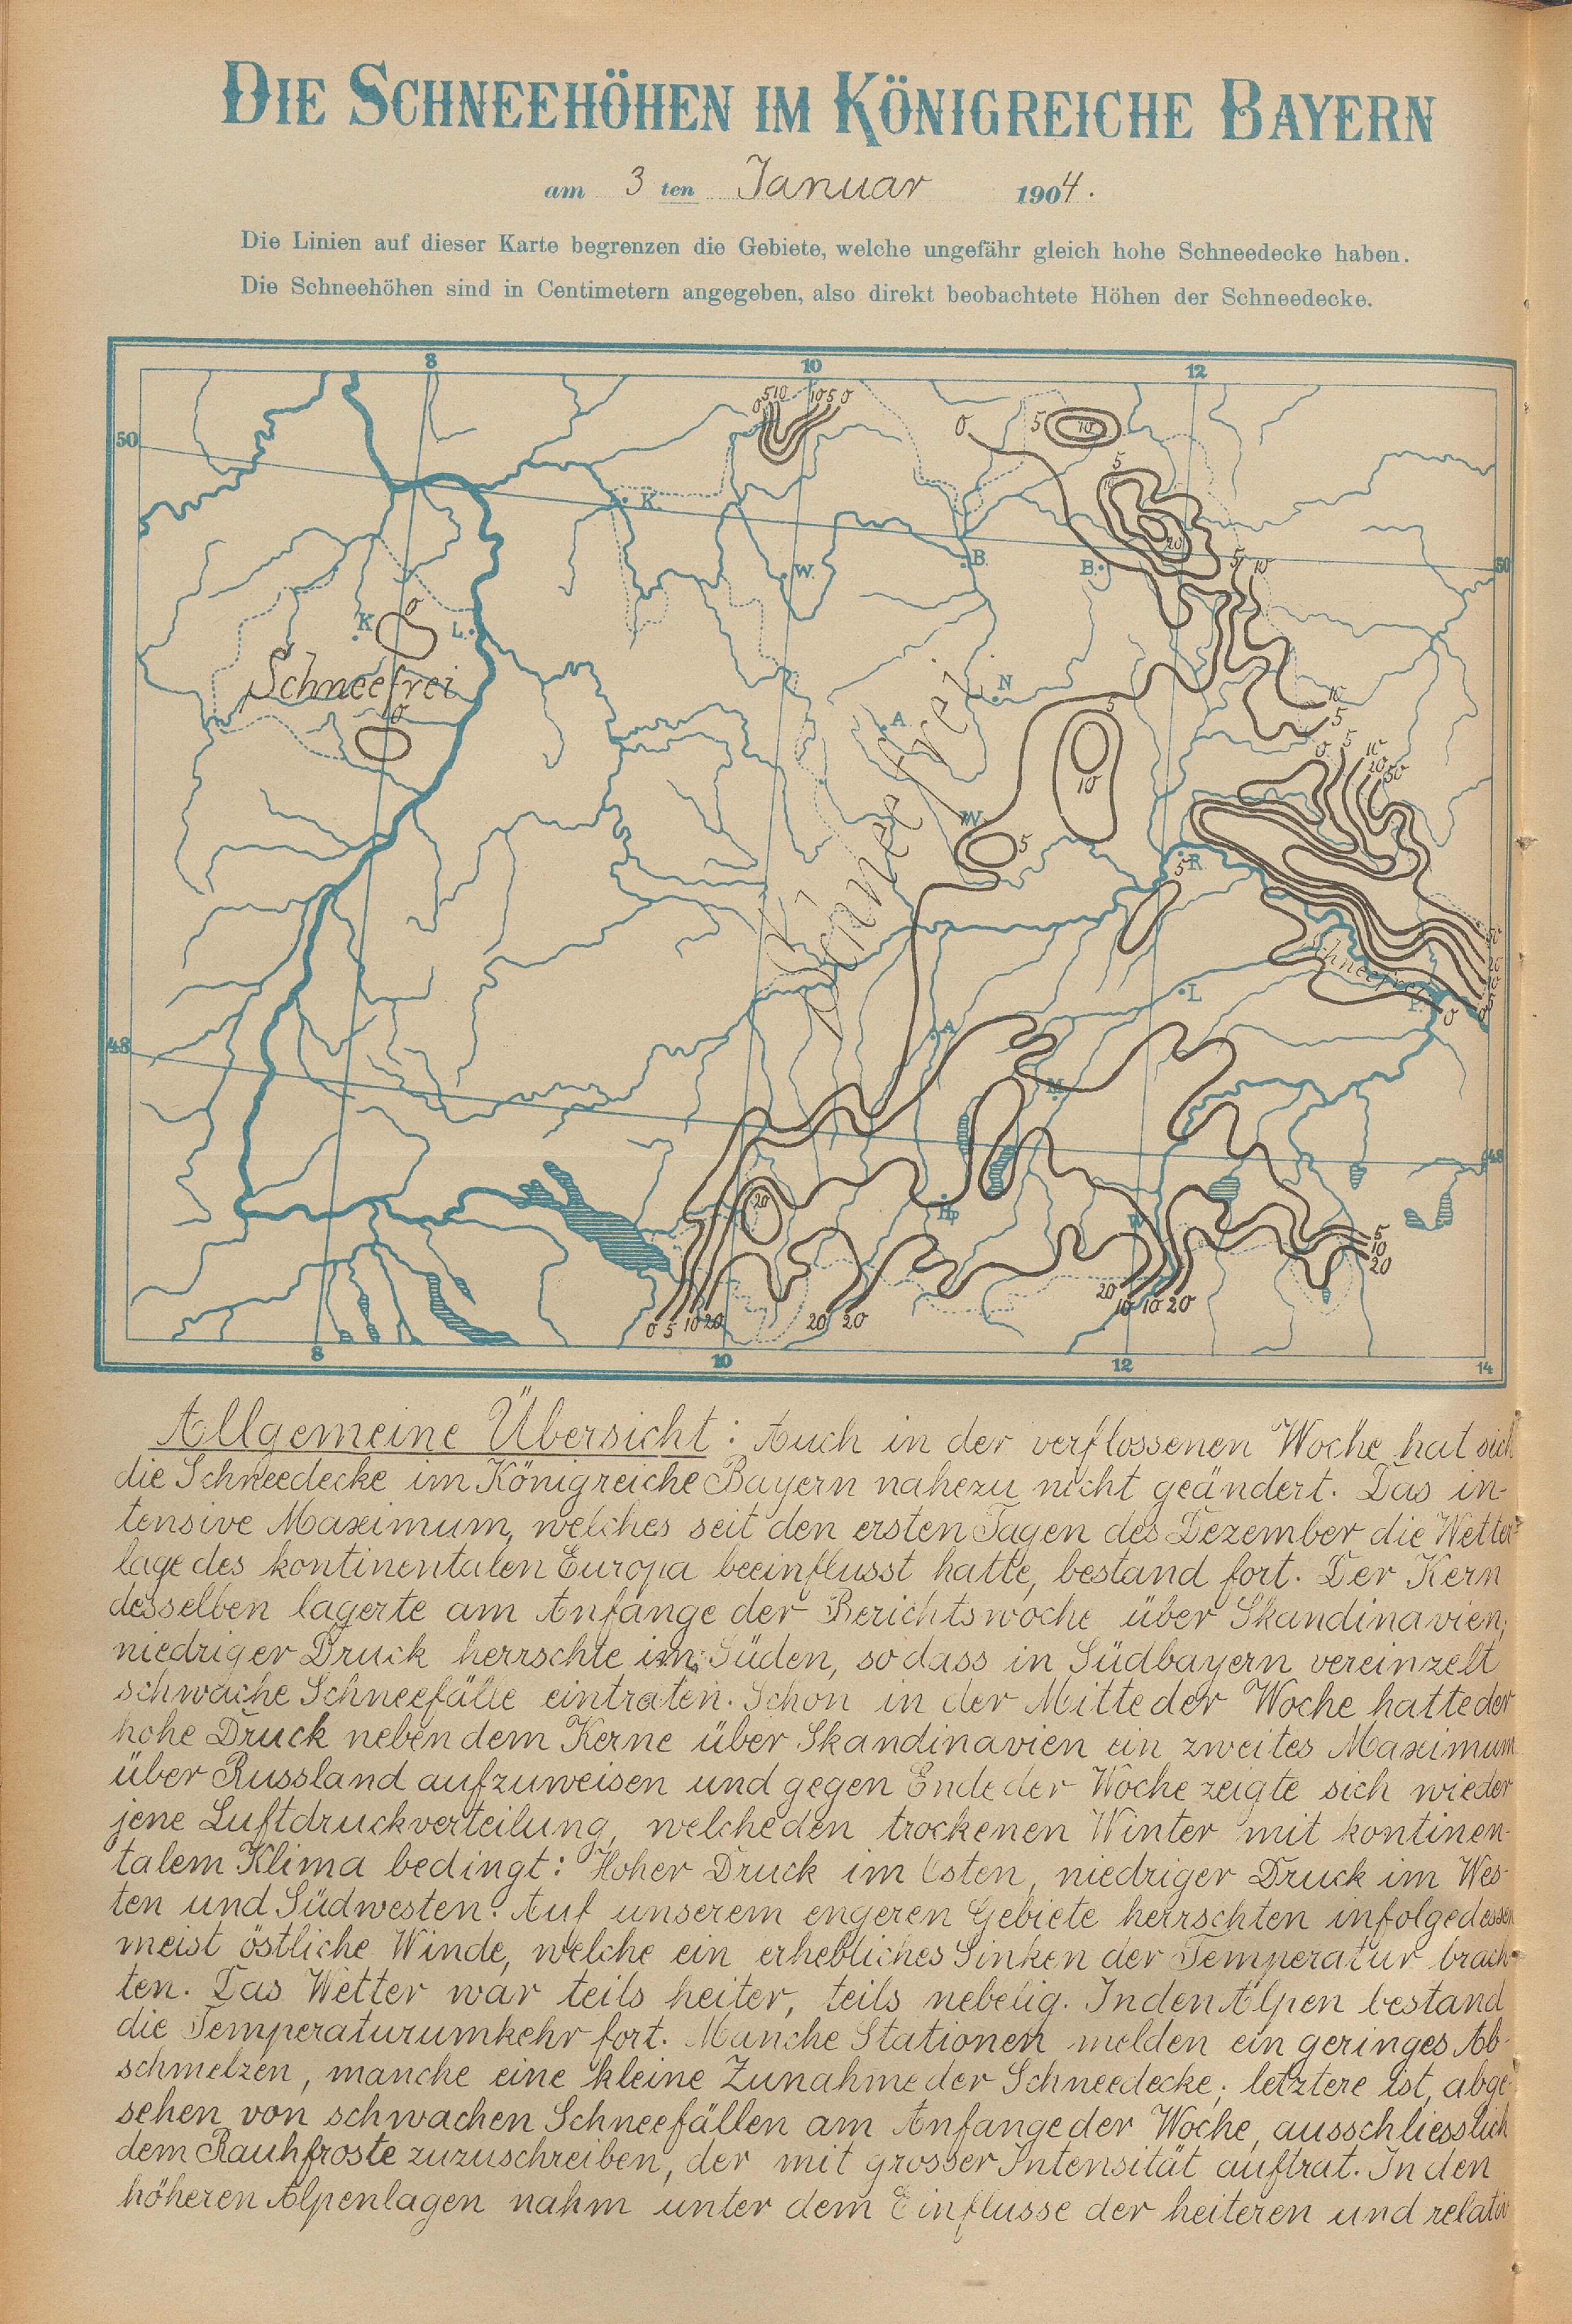 DIE SCHNEEHÖHEN IM KÖNIGREICHE BAYERN
am 3 ten Januar 1904.
Die Linien auf dieser Karte begrenzen die Gebiete, welche ungefähr gleich hohe Schneedecke haben.
Die Schneehöhen sind in Centimetern angegeben, also direkt beobachtete Höhen der Schneedecke.
8 10 12
0 5 10 10 5 0
0 5 10
50
5
10
K.
20
W. B. B. 5 10
50
K 0 L.
Schneefrei
0
N
A
5
10
5
10
Schneefrei
0 5 10 20 50
W. 5
R
5
Schneefrei
50
20
L
P. 0
A
48
M
48
20
Hp
W
5
10
20
0 5 10 20 20 20 20 10 10 20
8 10 12 14
Allgemeine Übersicht: Auch in der verflossenen Woche hat sich
die Schneedecke im Königreiche Bayern nahezu nicht geändert. Das in-
tensive Maximum, welches seit den ersten Tagen des Dezember die Wetter-
lage des kontinentalen Europa beeinflusst hatte, bestand fort. Der Kern
desselben lagerte am Anfange der Berichtswoche über Skandinavien,
niedriger Druck herrschte im Süden, sodass in Südbayern vereinzelt
schwache Schneefälle eintraten. Schon in der Mitte der Woche hatte der
hohe Druck neben dem Kerne über Skandinavien ein zweites Maximum
über Russland aufzuweisen und gegen Ende der Woche zeigte sich wieder
jene Luftdruckverteilung, welche den trockenen Winter mit kontinen-
talem Klima bedingt: Hoher Druck im Osten, niedriger Druck im Wes-
ten und Südwesten. Auf unserem engeren Gebiete herrschten infolgedessen
meist östliche Winde, welche ein erhebliches Sinken der Temperatur brach-
ten. Das Wetter war teils heiter, teils nebelig. In den Alpen bestand
die Temperaturumkehr fort. Manche Stationen melden ein geringes Ab-
schmelzen, manche eine kleine Zunahme der Schneedecke; letztere ist, abge-
sehen von schwachen Schneefällen am Anfange der Woche, ausschliesslich
dem Rauhfroste zuzuschreiben, der mit grosser Intensität auftrat. In den
höheren Alpenlagen nahm unter dem Einflusse der heiteren und relativ